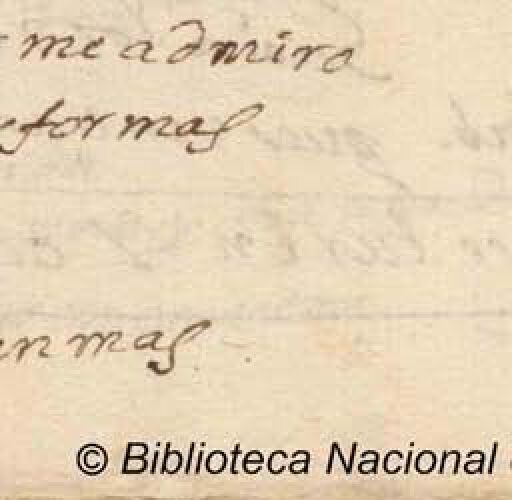 me admiro
eformas
en mas
© Biblioteca Nacional